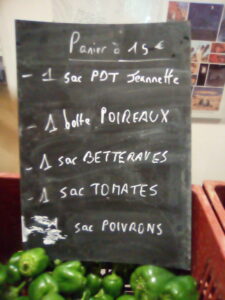 Panier à 15 €
- 1 sac PDT Jeannette
- 1 botte POIREAUX
- 1 sac BETTERAVES
- 1 sac TOMATES
sac POIVRONS